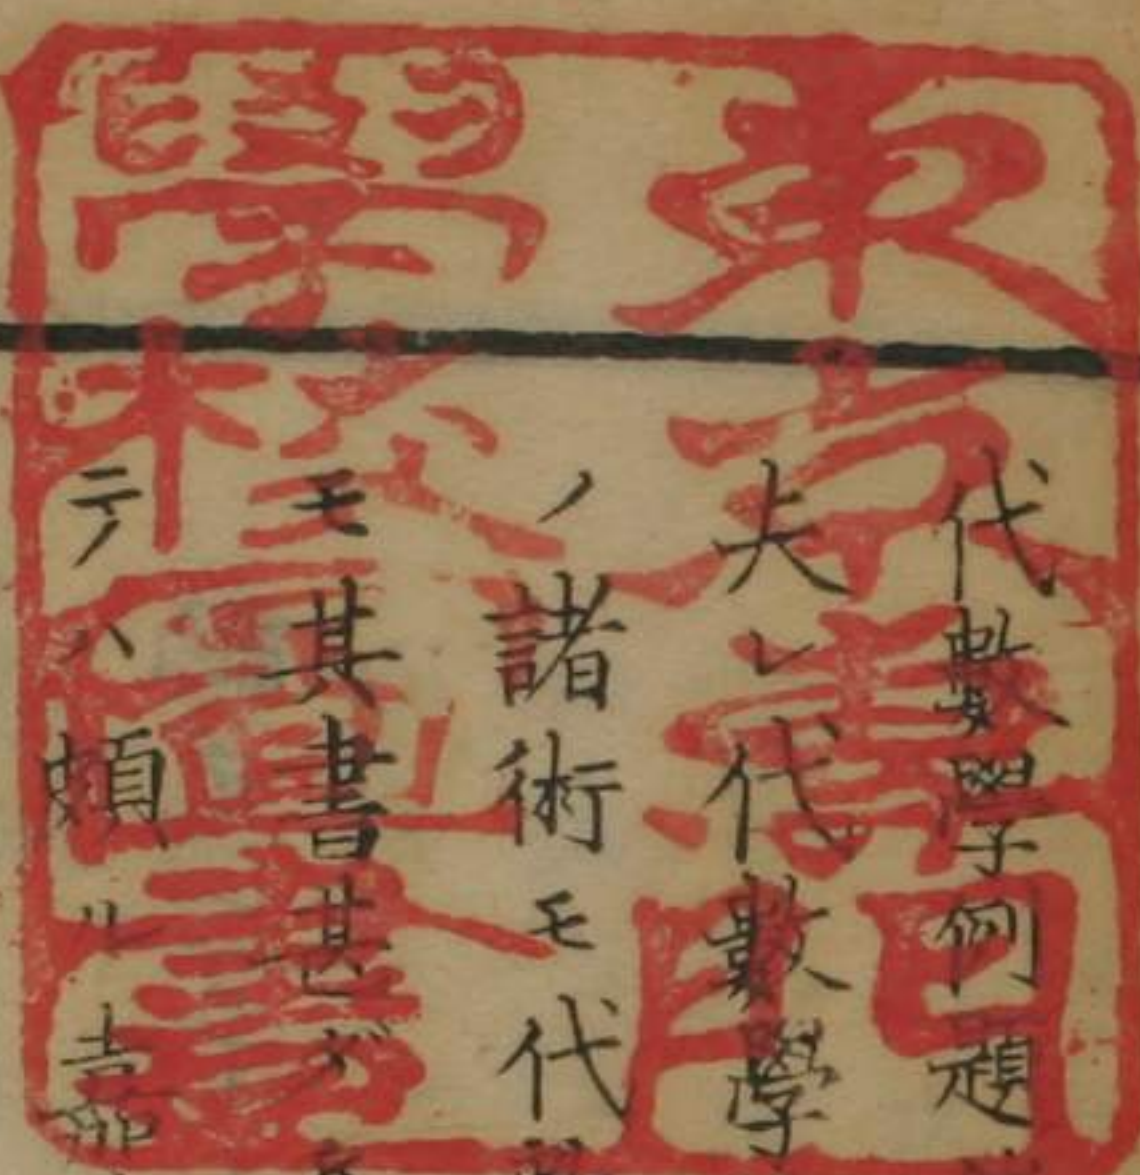 東京專門
學校圖書
代數學例題
夫レ代數學
ノ諸術モ代
モ其書甚ダ
テハ頗ル